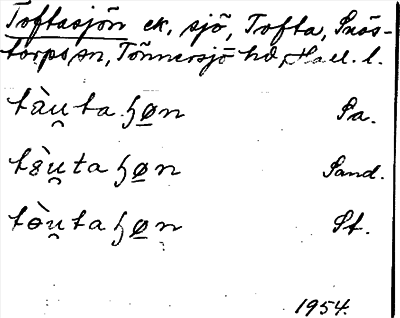 Toftasjön ek, sjö, Tofta, Snös-
torps sn, Tönnersjö hd, Hall. l.
tàu̯ta ɧø̲n Sa.
tèu̯ta ɧø̲n Sand.
tòu̯ta ɧø̲n St.
1954.